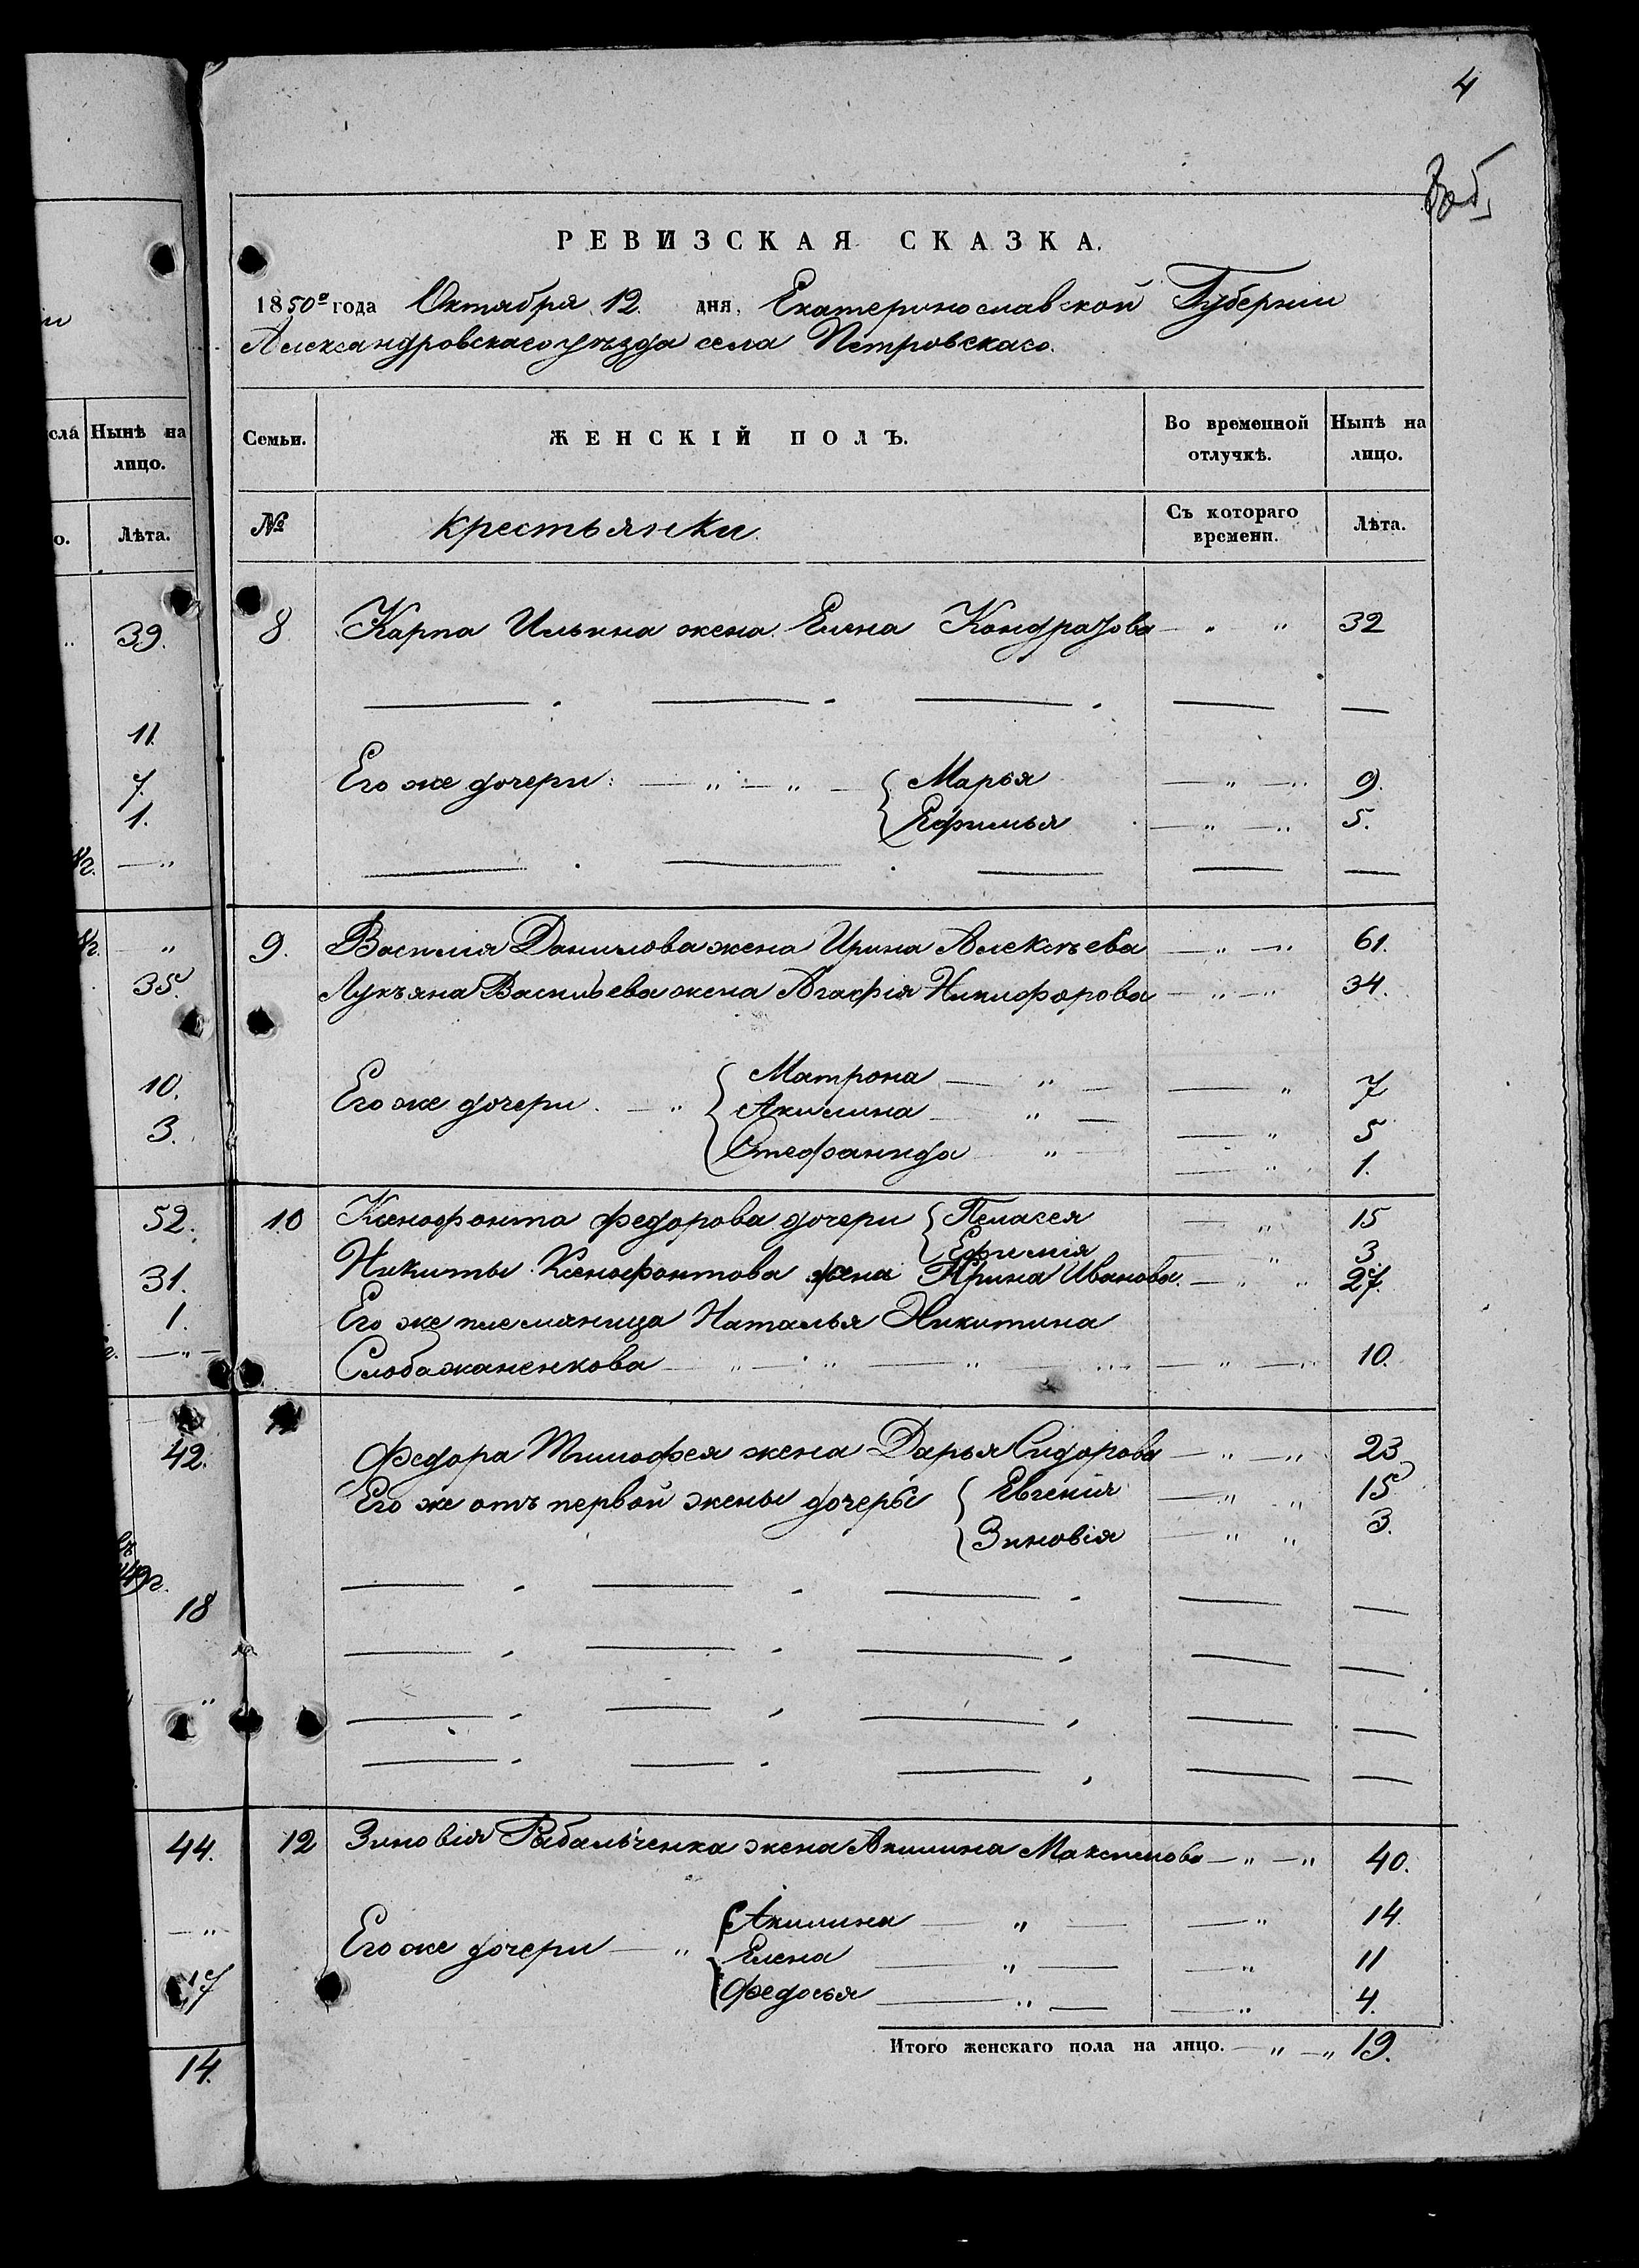 4
РЕВИЗСКАЯ СКАЗКА.
1850го года Октября 12. дня, Екатеринославской Губерніи
Александровскаго уѣзда села Петровскаго.
сла Нынѣ на лицо.
о. Лѣта.
39.
11.
7.
1.
35.
10.
3.
52.
31.
1.
42.
18
44.
17
14.
Семьи. ЖЕНСКІЙ ПОЛЪ. Во временной отлучкѣ. Нынѣ на лицо.
№ Крестьянки. Съ котораго времени. Лѣта.
8 Карпа Ильина жена Елена Кондратова — " " 32
Его же дочери: — " — " — { Марья — " — " 9.
Ефимья — " — " 5.
9. Василія Данилова жена Ирина Алексѣева — " — " 61.
Лукъяна Васильева жена Агафія Никифорова — " — " 34.
Его же дочери. — " { Матрона — " — — " 7
Акилина — " — — " 5
Стефанида — " — — " 1.
10 Ксенофонта Федорова дочери { Пелагея — " 15
Ефимія — " 3
Никиты Ксенофонтова жена Ирина Иванова. — " " 27.
Его же племяница Наталья Никитина
Слобажаненкова — " — " — " — " — " 10.
11 Федора Тимофея жена Дарья Сидорова — " — " 23
Его же отъ первой жены дочери { Евгенія — " " 15
Зиновія — " " 3.
12 Зиновія Рыбальченка жена Акилина Максимова — " — " 40.
Его же дочери — " { Акилина — " — — " 14.
Елена — " — — " 11
Федосья — " — — " 4.
Итого женскаго пола на лицо. — " — " 19.